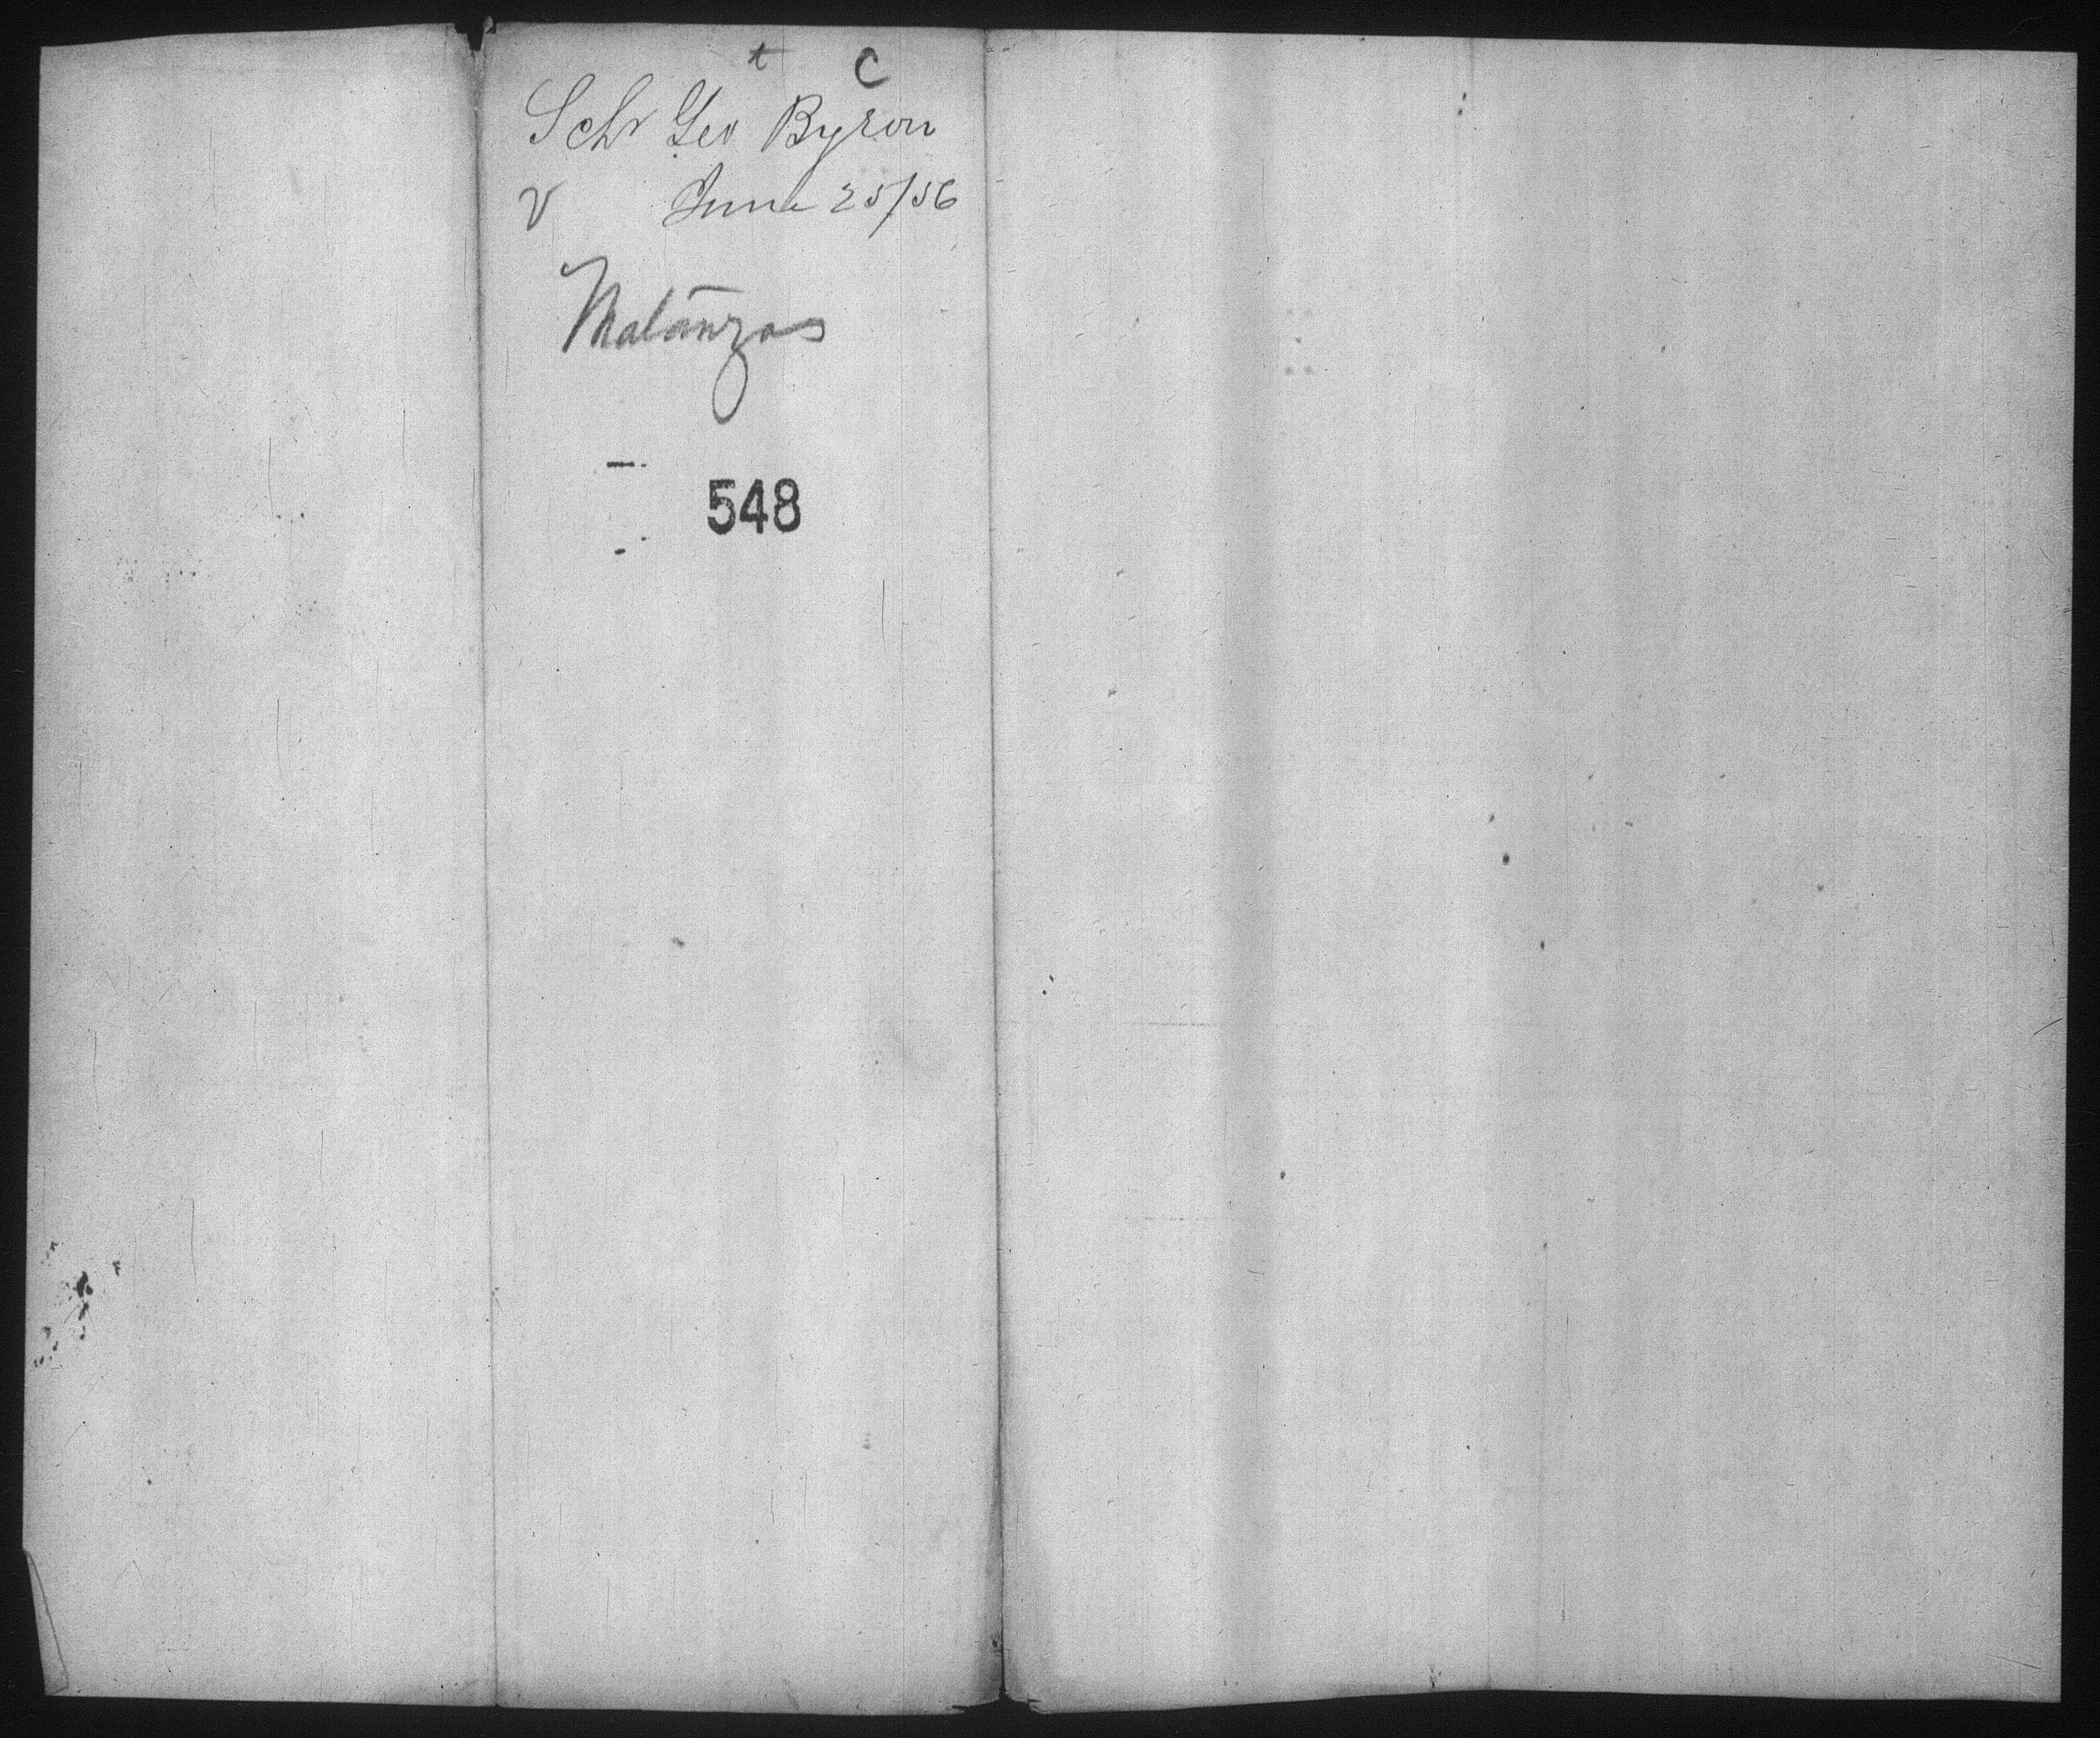 t C
Schr Geo Byron
V June 25/56
Matanzas
548